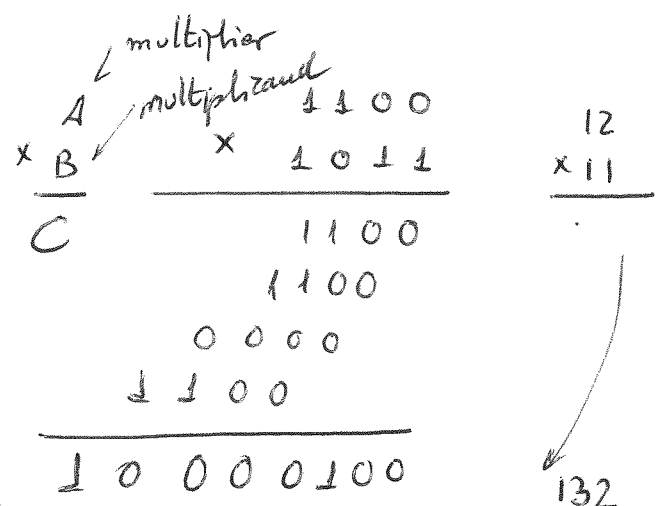 multiplier
multiplicand
A 1100 12
× B × 1011 × 11
C 1100
1100
0000
1100
10000100 132